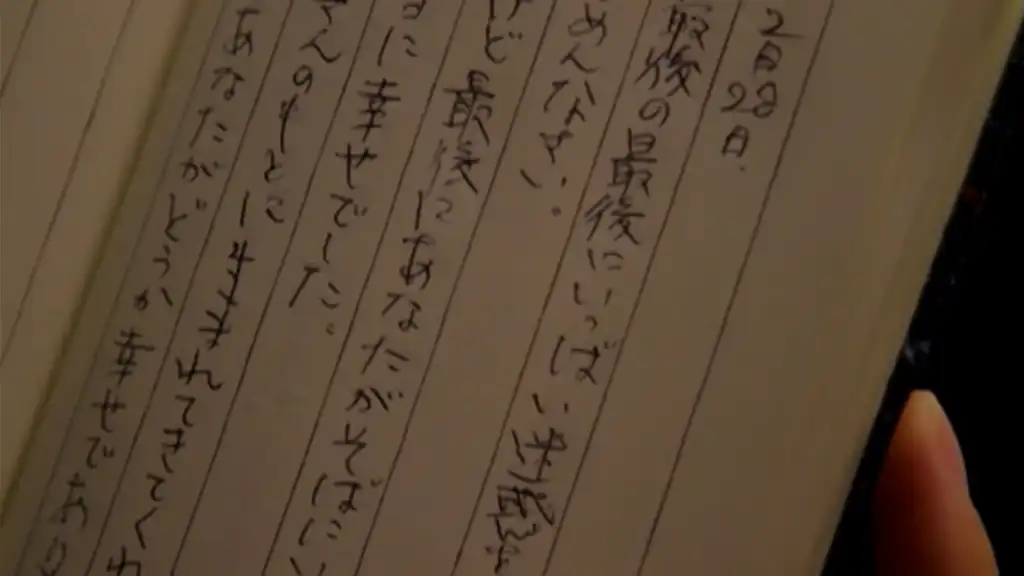 2月28日
最後の最後にいっぱい迷惑
めんなさい。
けど最後にあなたがそばにい
に幸せでした。
さんのもとに生まれてきてくれ
あなたがどうか幸せであり